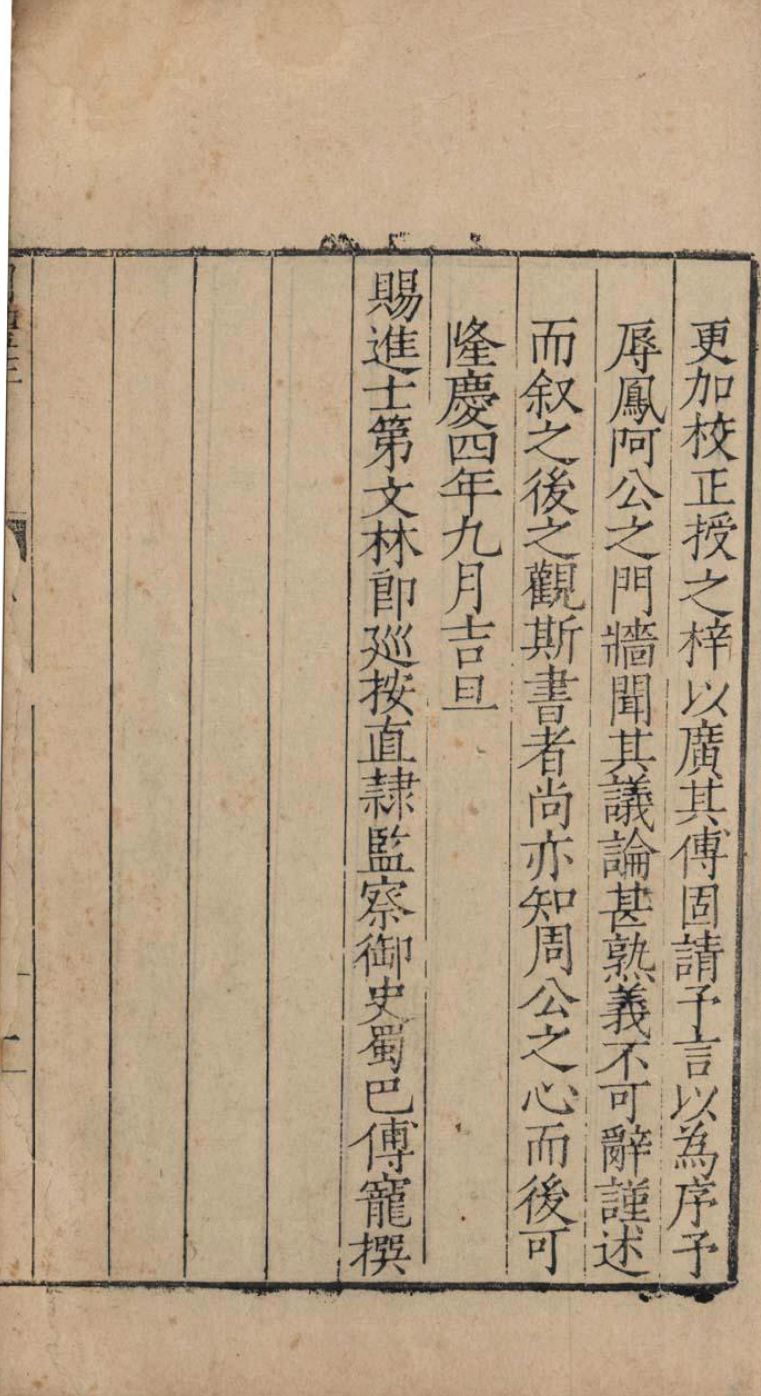 更加校正授之梓以廣其傳固請予言以為序予
辱鳳阿公之門牆聞其議論甚熟義不可辭謹述
而叙之後之觀斯書者尚亦知周公之心而後可
隆慶四年九月吉旦
賜進士第文林郎廵按直隸監察御史蜀巴傅寵撰